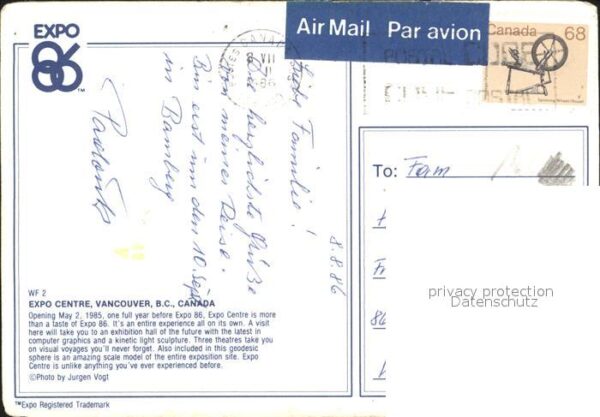 EXPO
86™
Air Mail Par avion
Canada 68
CANADA
VIII
86
POSTAL CODE
CODE POSTAL
8.8.86
Liebe Familie!
Die herzlichste Grüße
von meiner Reise.
Bin erst um den 10. Sept
in Bamberg
To: Fam
privacy protection
Datenschutz
86
WF 2
EXPO CENTRE, VANCOUVER, B.C., CANADA
Opening May 2, 1985, one full year before Expo 86, Expo Centre is more
than a taste of Expo 86. It's an entire experience all on its own. A visit
here will take you to an exhibition hall of the future with the latest in
computer graphics and a kinetic light sculpture. Three theatres take you
on visual voyages you'll never forget. Also included in this geodesic
sphere is an amazing scale model of the entire exposition site. Expo
Centre is unlike anything you've ever experienced before.
©Photo by Jurgen Vogt
™Expo Registered Trademark